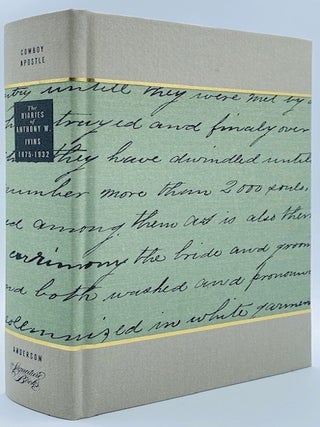 COWBOY
APOSTLE
The
DIARIES
of
ANTHONY W.
IVINS
1875-1932
ntry untill they were met by a
trayed and finaly over
they have dwindled untill
number more than 2000 souls.
ed among them as is also the
cerrimony the bride and groom
and both washed and pronoun
solemnized in white garmen
ANDERSON
Signature
Books